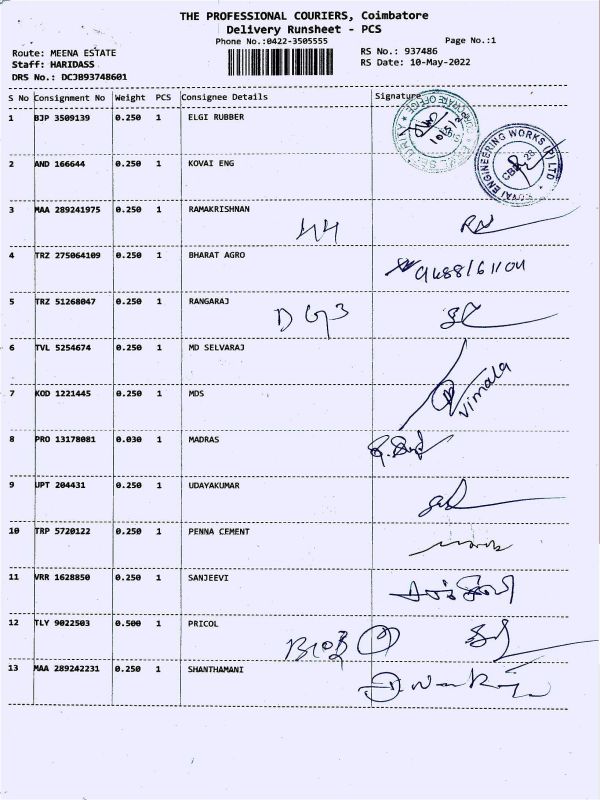 THE PROFESSIONAL COURIERS, Coimbatore
Delivery Runsheet - PCS
Phone No.:0422-3505555
Page No.:1
Route: MEENA ESTATE
RS No.: 937486
Staff: HARIDASS
RS Date: 10-May-2022
DRS No.: DCJB93748601
S No Consignment No Weight PCS Consignee Details Signature
1 BJP 3509139 0.250 1 ELGI RUBBER
ENGINEERING WORKS (P) LTD
2 AND 166644 0.250 1 KOVAI ENG
3 MAA 289241975 0.250 1 RAMAKRISHNAN
44
4 TRZ 275064109 0.250 1 BHARAT AGRO
5 TRZ 51268047 0.250 1 RANGARAJ
6 TVL 5254674 0.250 1 MD SELVARAJ
7 KOD 1221445 0.250 1 MDS
Vimala
8 PRO 13178081 0.030 1 MADRAS
9 UPT 204431 0.250 1 UDAYAKUMAR
10 TRP 5720122 0.250 1 PENNA CEMENT
11 VRR 1628850 0.250 1 SANJEEVI
12 TLY 9022503 0.500 1 PRICOL
13 MAA 289242231 0.250 1 SHANTHAMANI